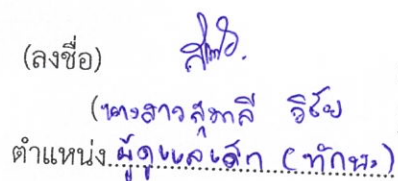 (ลงชื่อ)
(นางสาวสุมาลี วิชัย
ตำแหน่ง ผู้ดูแลเด็ก (ทักษะ)